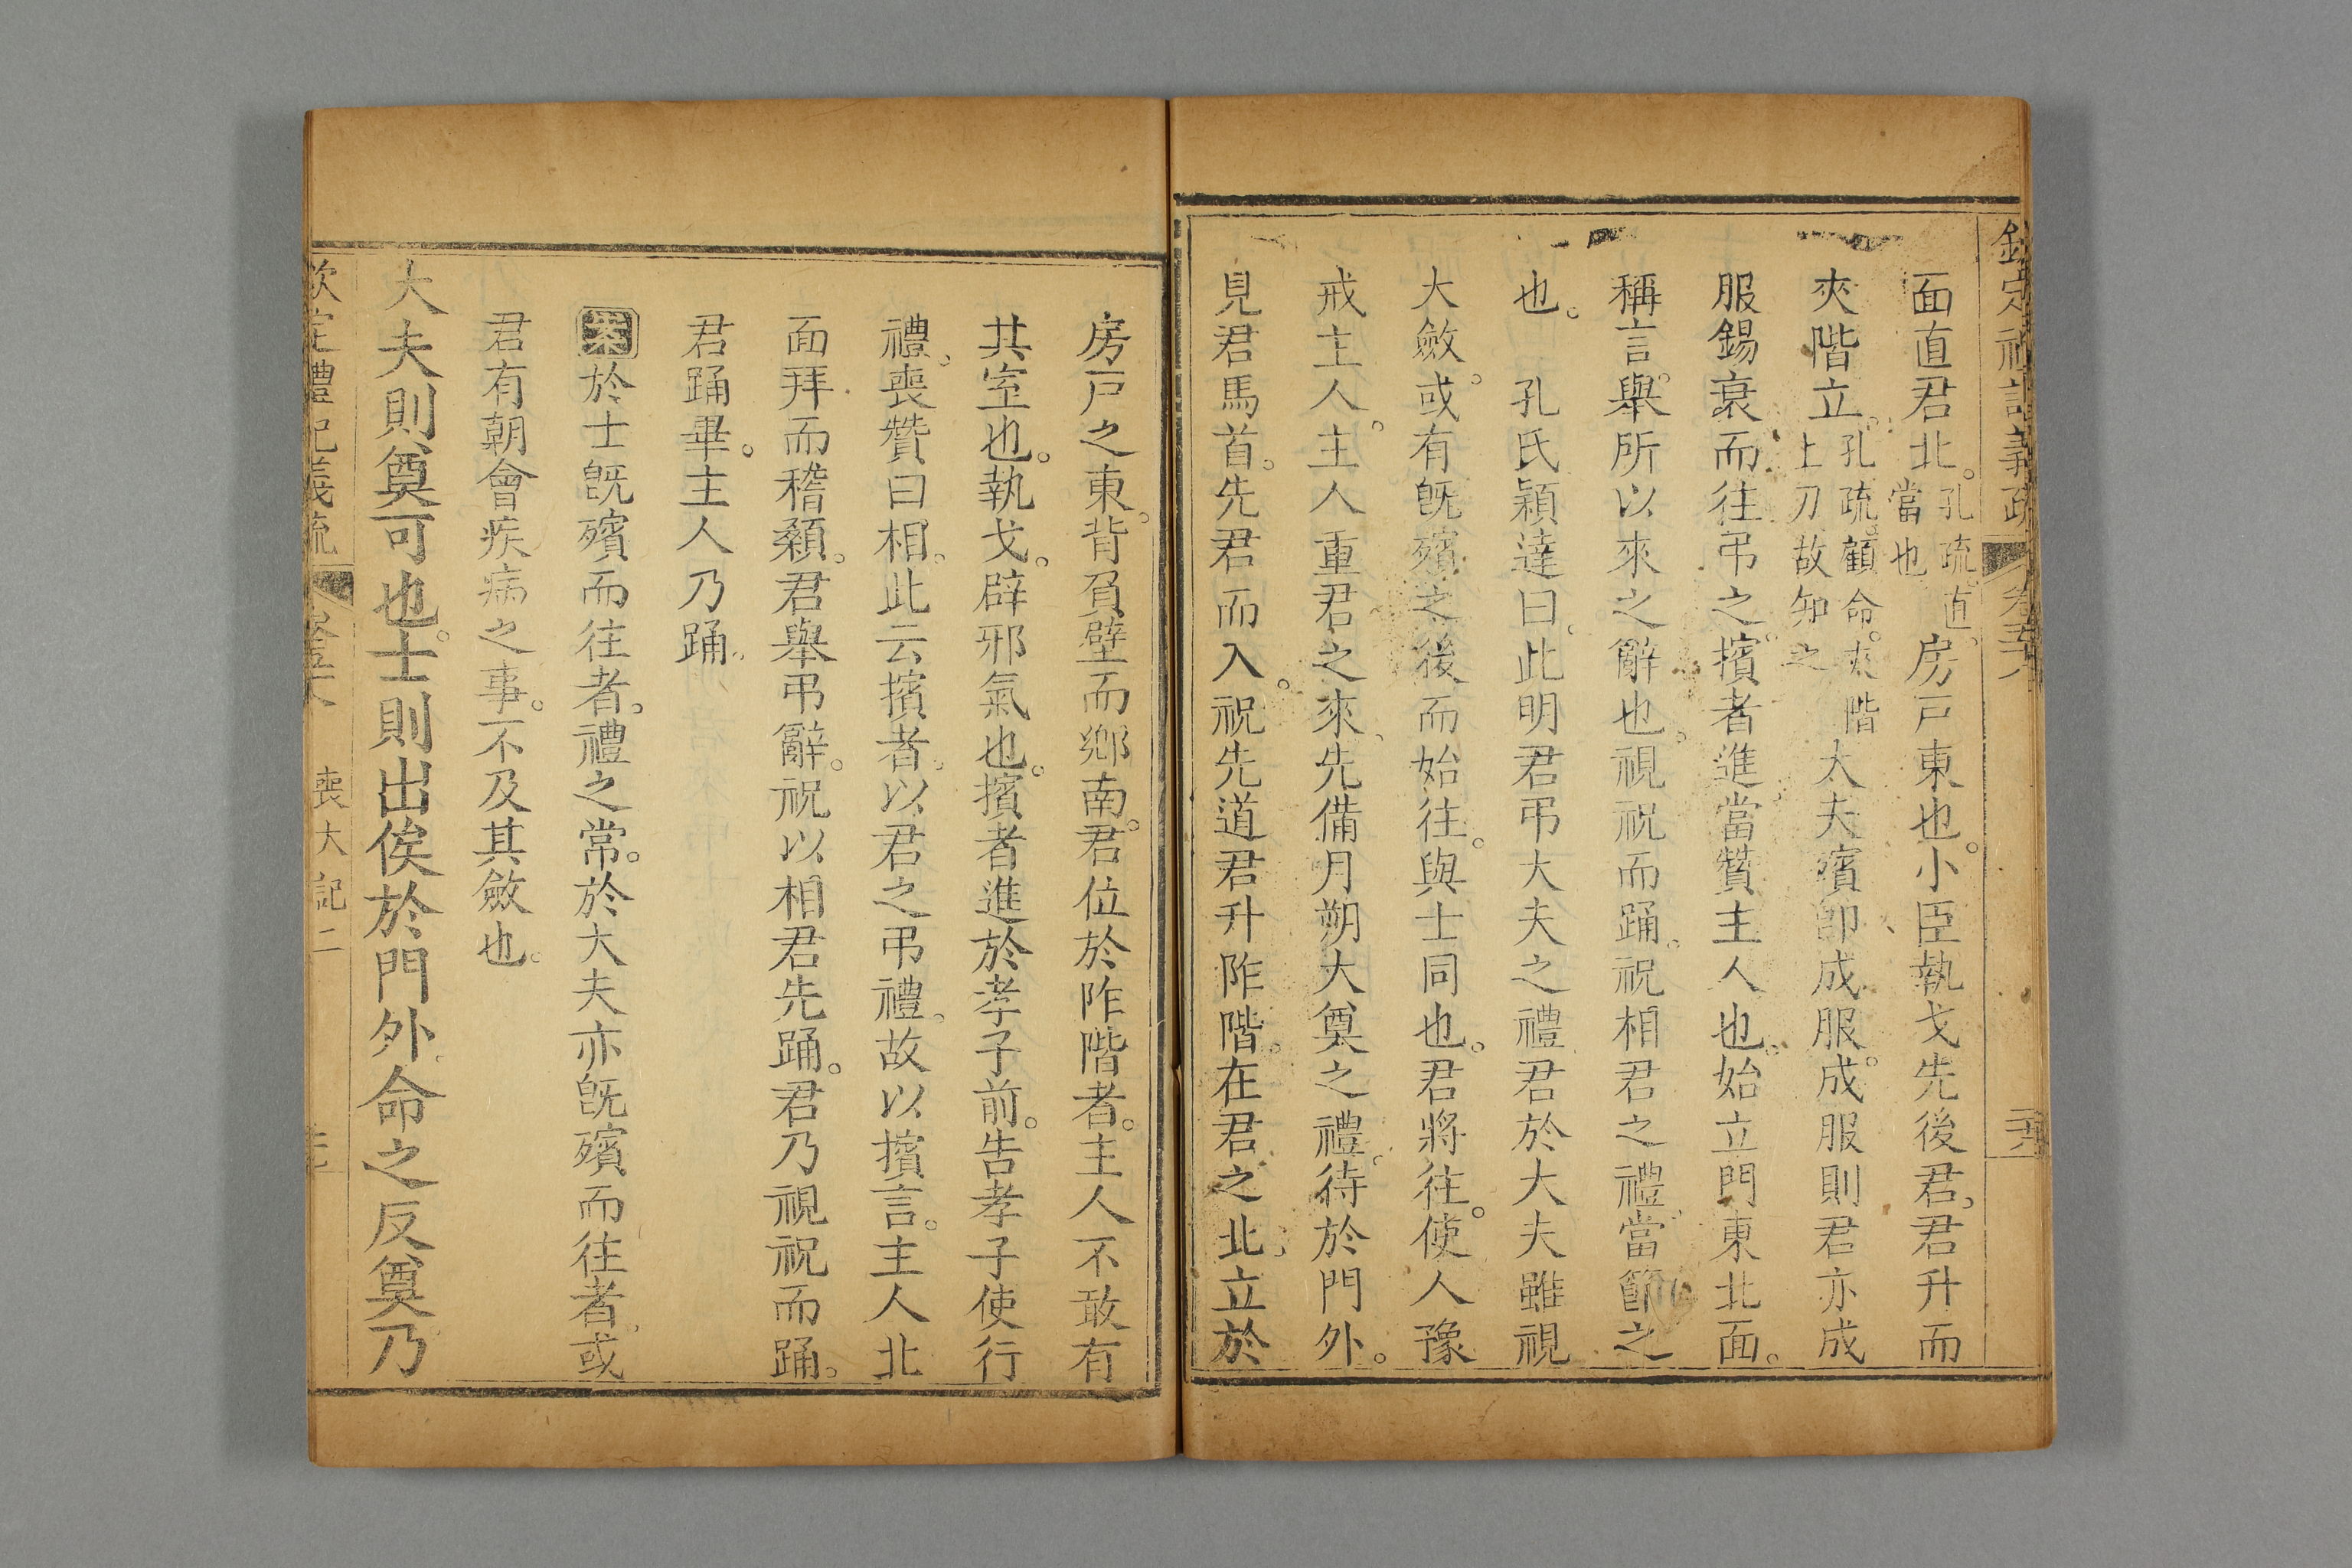 欽定禮記義疏 卷五十八
面直君北。孔疏。直。當也 房戸東也。小臣執戈先後君，君升而
夾階立。孔疏。顧命。夾階上刃故知之 大夫殯卽成服。成服則君亦成
服錫衰而往弔之。擯者進當贊主人也。始立門東北面。
稱言。舉所以來之辭也。視祝而踊。祝相君之禮。當節之
也。孔氏穎達曰。此明君弔大夫之禮君於大夫雖視
大斂。或有旣殯之後而始往。與士同也。君將往。使人豫
戒主人。主人重君之來、先備月朔大奠之禮。待於門外。
見君馬首。先君而入。祝先道君升阼階。在君之北。立於
房戸之東。背負壁而鄕南。君位於阼階者。主人不敢有
其室也。執戈。辟邪氣也。擯者進於孝子前。告孝子使行
禮。喪贊曰相。此云擯者。以君之弔禮。故以擯言。主人北
面拜而稽顙。君舉弔辭。祝以相君先踊。君乃視祝而踊。
君踊畢。主人乃踊。
案於士旣殯而往者。禮之常。於大夫亦旣殯而往者、或
君有朝會疾病之事。不及其斂也。
大夫則奠可也。士則出俟於門外。命之反奠乃
欽定禮記義疏 喪大記二